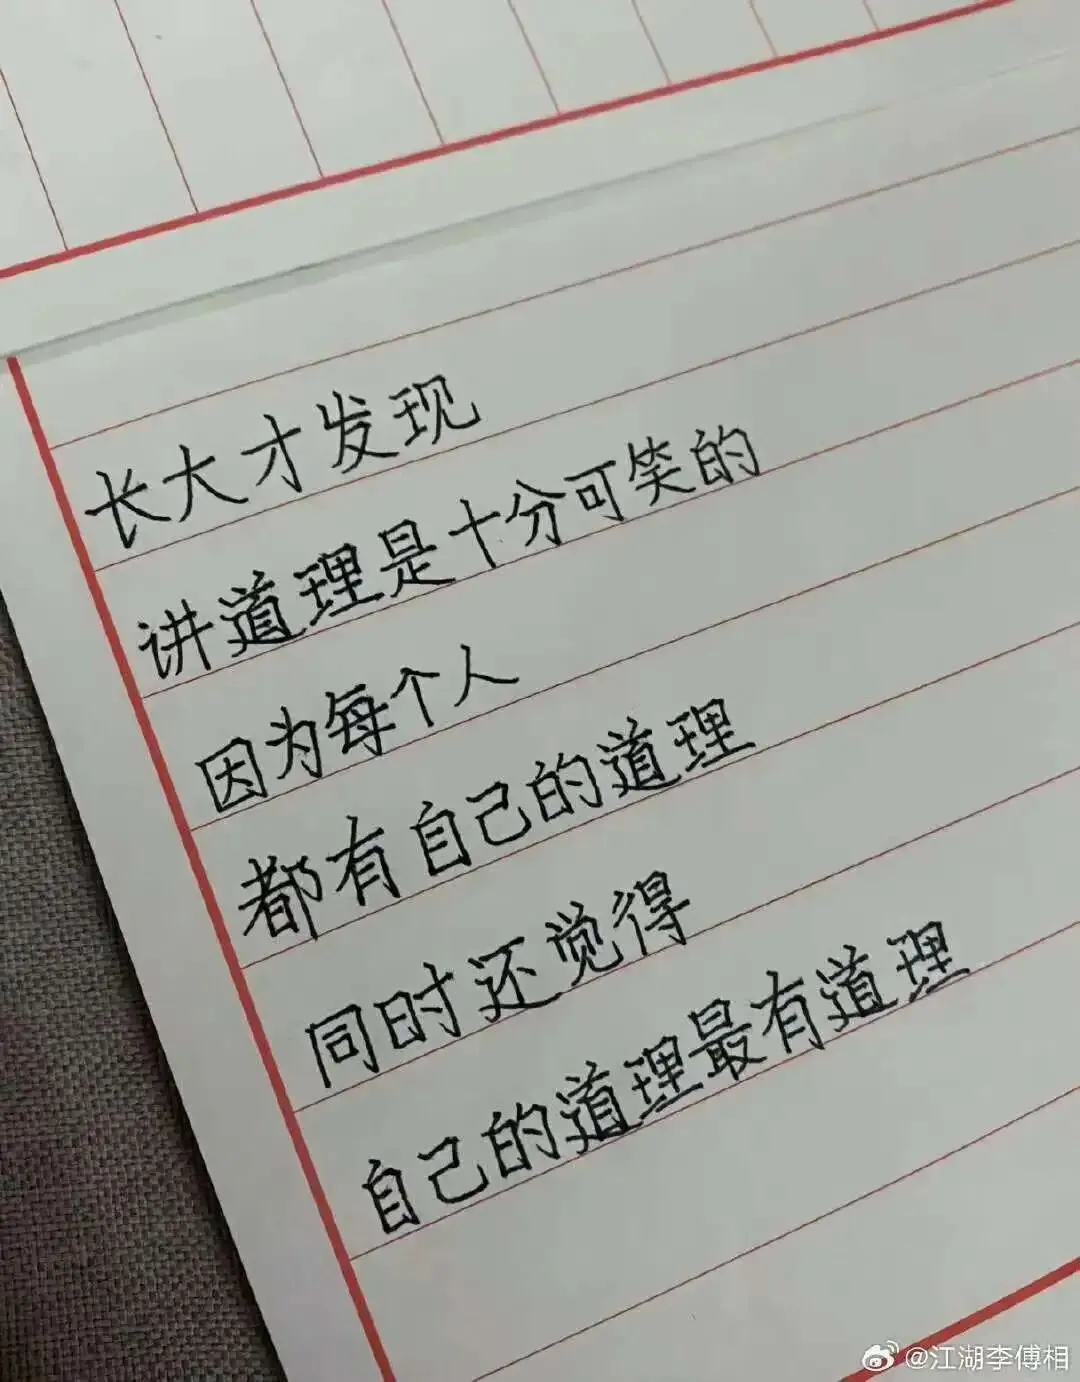 长大才发现
讲道理是十分可笑的
因为每个人
都有自己的道理
同时还觉得
自己的道理最有道理
@江湖李傅相